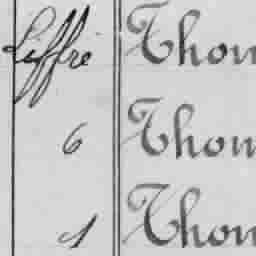 Liffré Thom
6 Thom
1 Thom